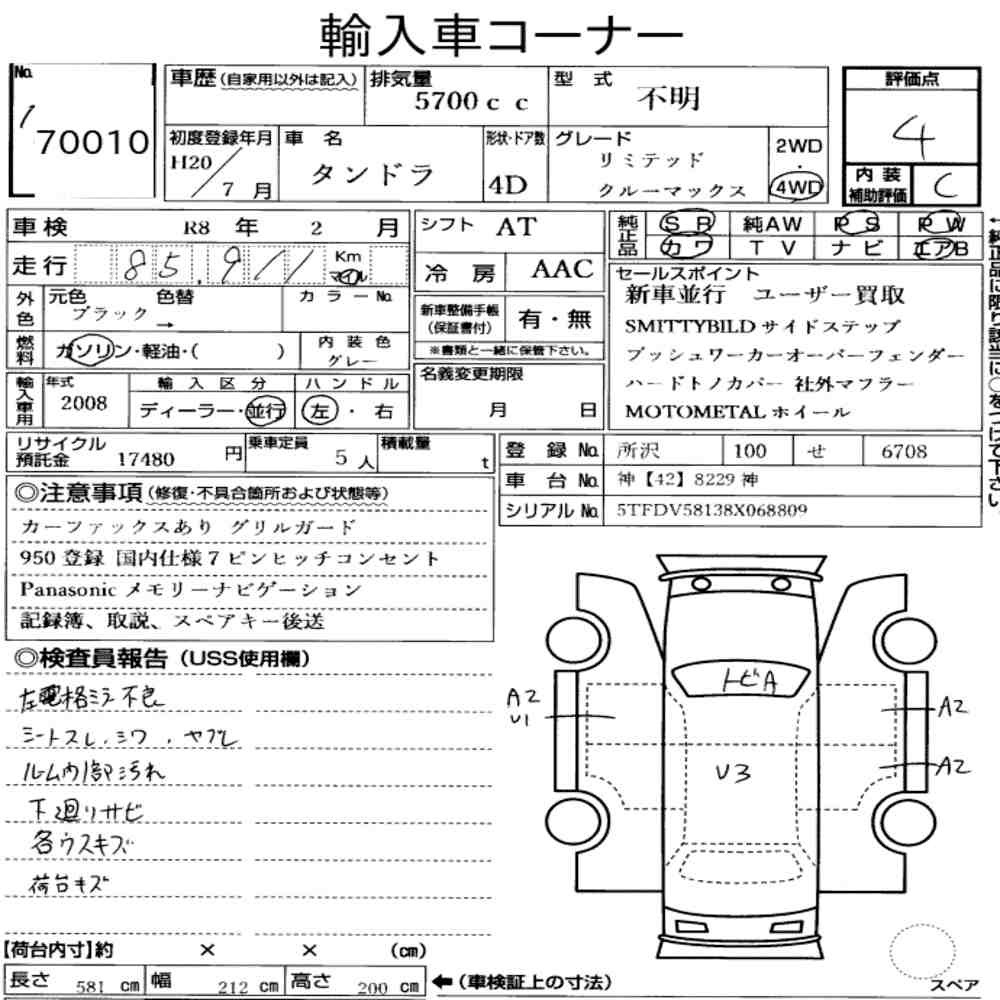 輸入車コーナー
No. 170010
車歴(自家用以外は記入) 排気量 5700cc 型式 不明
評価点 4
初度登録年月 H20/7月 車名 タンドラ 形状・ドア数 4D グレード リミテッド クルーマックス 2WD・4WD
内装補助評価 C
車検 R8年2月
シフト AT
純正品 SR 純AW PS PW
カワ TV ナビ エアB
走行 85,911 Km マイル
冷房 AAC
外色 元色 ブラック 色替 → カラーNo.
新車整備手帳(保証書付) 有・無
※書類と一緒に保管下さい。
燃料 ガソリン・軽油・( ) 内装色 グレー
輸入車用 年式 2008 輸入区分 ディーラー・並行 ハンドル 左・右
名義変更期限 月 日
セールスポイント
新車並行 ユーザー買取
SMITTYBILDサイドステップ
ブッシュワーカーオーバーフェンダー
ハードトノカバー 社外マフラー
MOTOMETALホイール
←純正品に限り該当に○をつけて下さい。
リサイクル預託金 17480円 乗車定員 5人 積載量 t
登録No. 所沢 100 せ 6708
車台No. 神【42】8229神
シリアルNo. 5TFDV58138X068809
◎注意事項(修復・不具合箇所および状態等)
カーファックスあり グリルガード
950登録 国内仕様7ピンヒッチコンセント
Panasonicメモリーナビゲーション
記録簿、取説、スペアキー後送
◎検査員報告(USS使用欄)
左電格ミラー不良
シートスレ、シワ、ヤブレ
ルーム内部汚れ
下廻りサビ
各ウスキズ
荷台キズ
トビA
A2
U1
A2
A2
U3
【荷台内寸】約 × × (cm)
長さ 581cm 幅 212cm 高さ 200cm ←(車検証上の寸法)
スペア